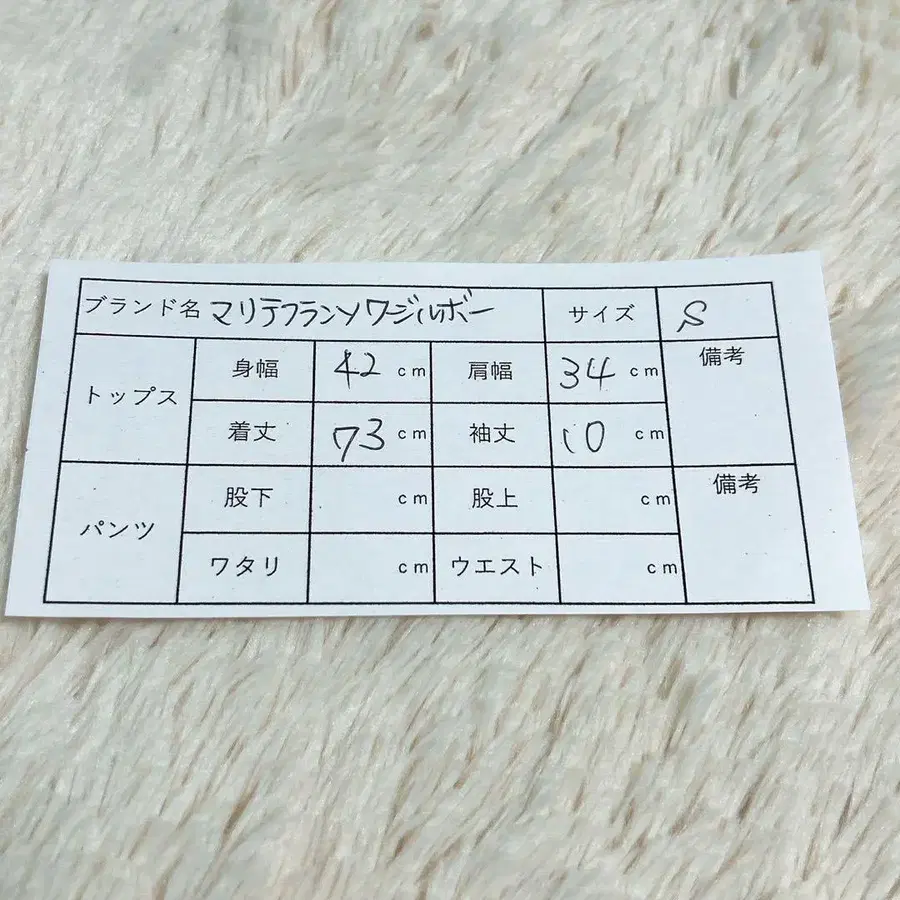 ブランド名 マリテフランソワジルボー サイズ S
トップス 身幅 42 cm 肩幅 34 cm 備考
着丈 73 cm 袖丈 10 cm
パンツ 股下 cm 股上 cm 備考
ワタリ cm ウエスト cm